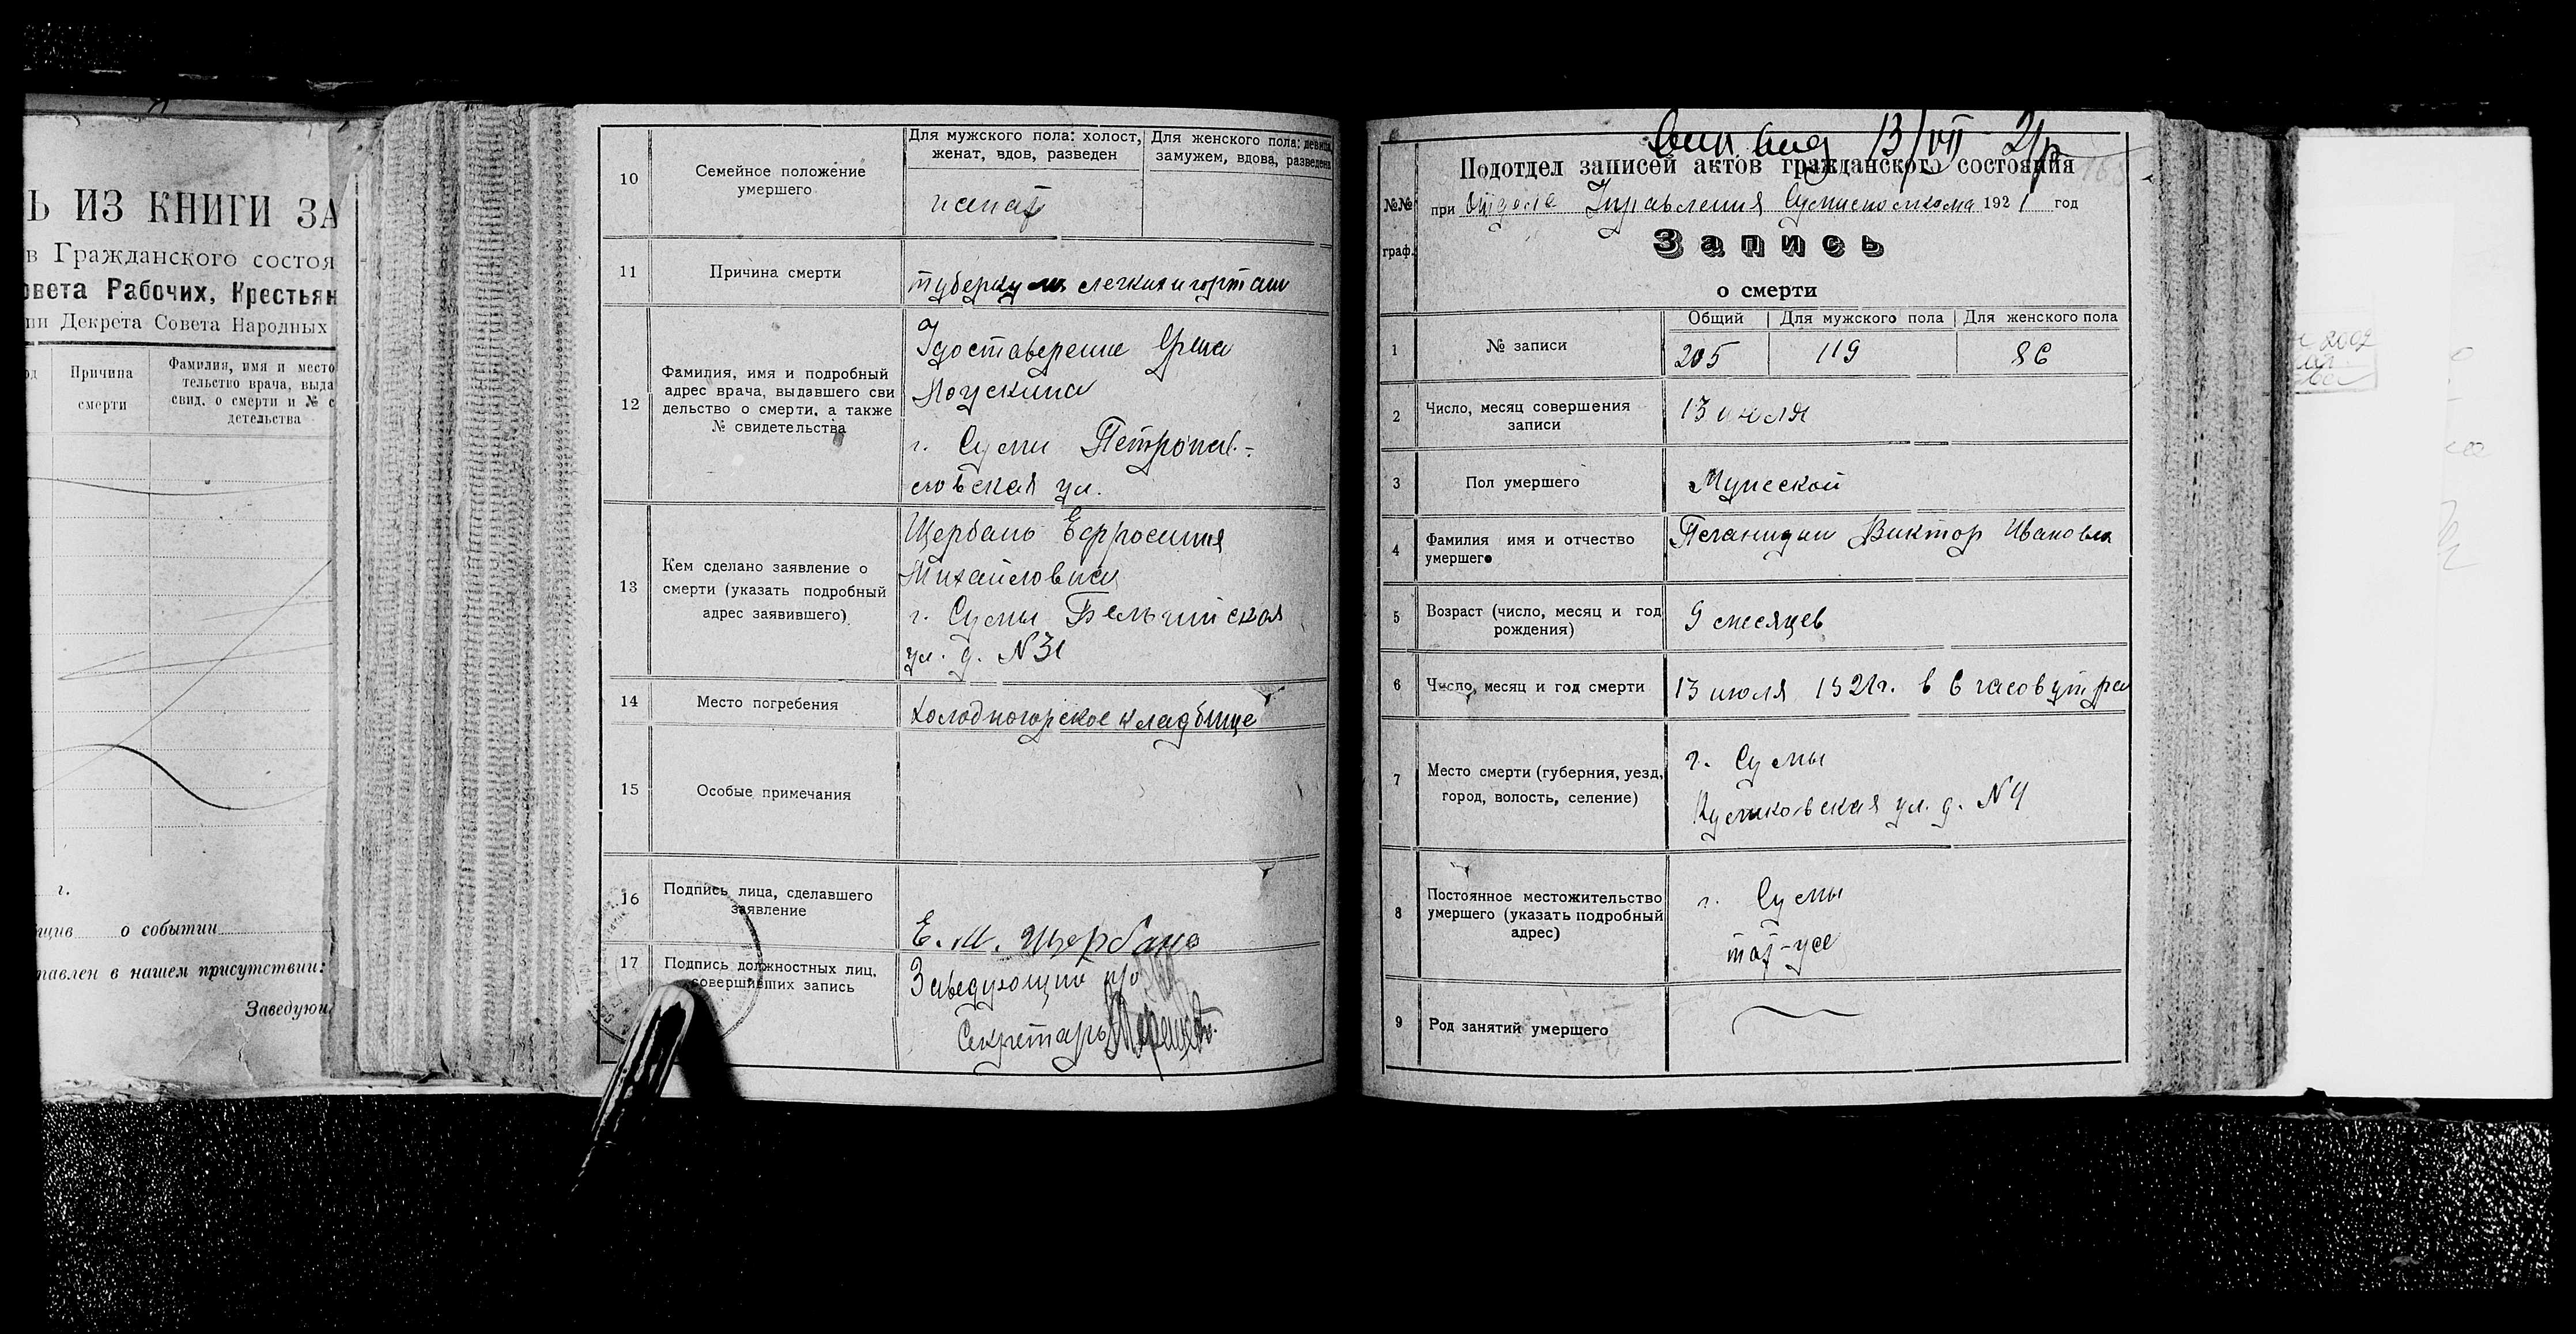 Ь ИЗ КНИГИ ЗА
в Гражданского состоя
овета Рабочих, Крестьян
ии Декрета Совета Народных
од
Причина
смерти
Фамилия, имя и место
тельство врача, выда
свид. о смерти и № с
детельства
г.
о событии
тавлен в нашем присутствии:
Заведую
10
Семейное положение
умершего
Для мужского пола: холост,
женат, вдов, разведен
Для женского пола: девица
замужем, вдова, разведена
женат
11
Причина смерти
туберкулез легких и гортани
12
Фамилия, имя и подробный
адрес врача, выдавшего сви
дельство о смерти, а также
№ свидетельства
г. Сумы Петропав-
ловская ул.
13
Кем сделано заявление о
смерти (указать подробный
адрес заявившего).
Щербань Ефросиния
Михайловна
г. Сумы Бельгийская
ул. д. N 31
14
Место погребения
Холодногорское кладбище
15
Особые примечания
16
Подпись лица, сделавшего
заявление
Е. М. Щербань
17
Подпись должностных лиц,
совершивших запись
Заведующий п/о
Секретарь
13/VII 21р
Подотдел записей актов гражданского состояния
№№
граф.
при Отделе Управления 1921 год
Запись
о смерти
1
№ записи
Общий
Для мужского пола
Для женского пола
205
119
86
2
Число, месяц совершения
записи
13 июля
3
Пол умершего
Мужской
4
Фамилия имя и отчество
умершего
Виктор Иванович
5
Возраст (число, месяц и год
рождения)
9 месяцев
6
Число, месяц и год смерти
13 июля 1921г. в 6 часов утра
7
Место смерти (губерния, уезд,
город, волость, селение)
г. Сумы
ул. д. N 4
8
Постоянное местожительство
умершего (указать подробный
адрес)
г. Сумы
9
Род занятий умершего